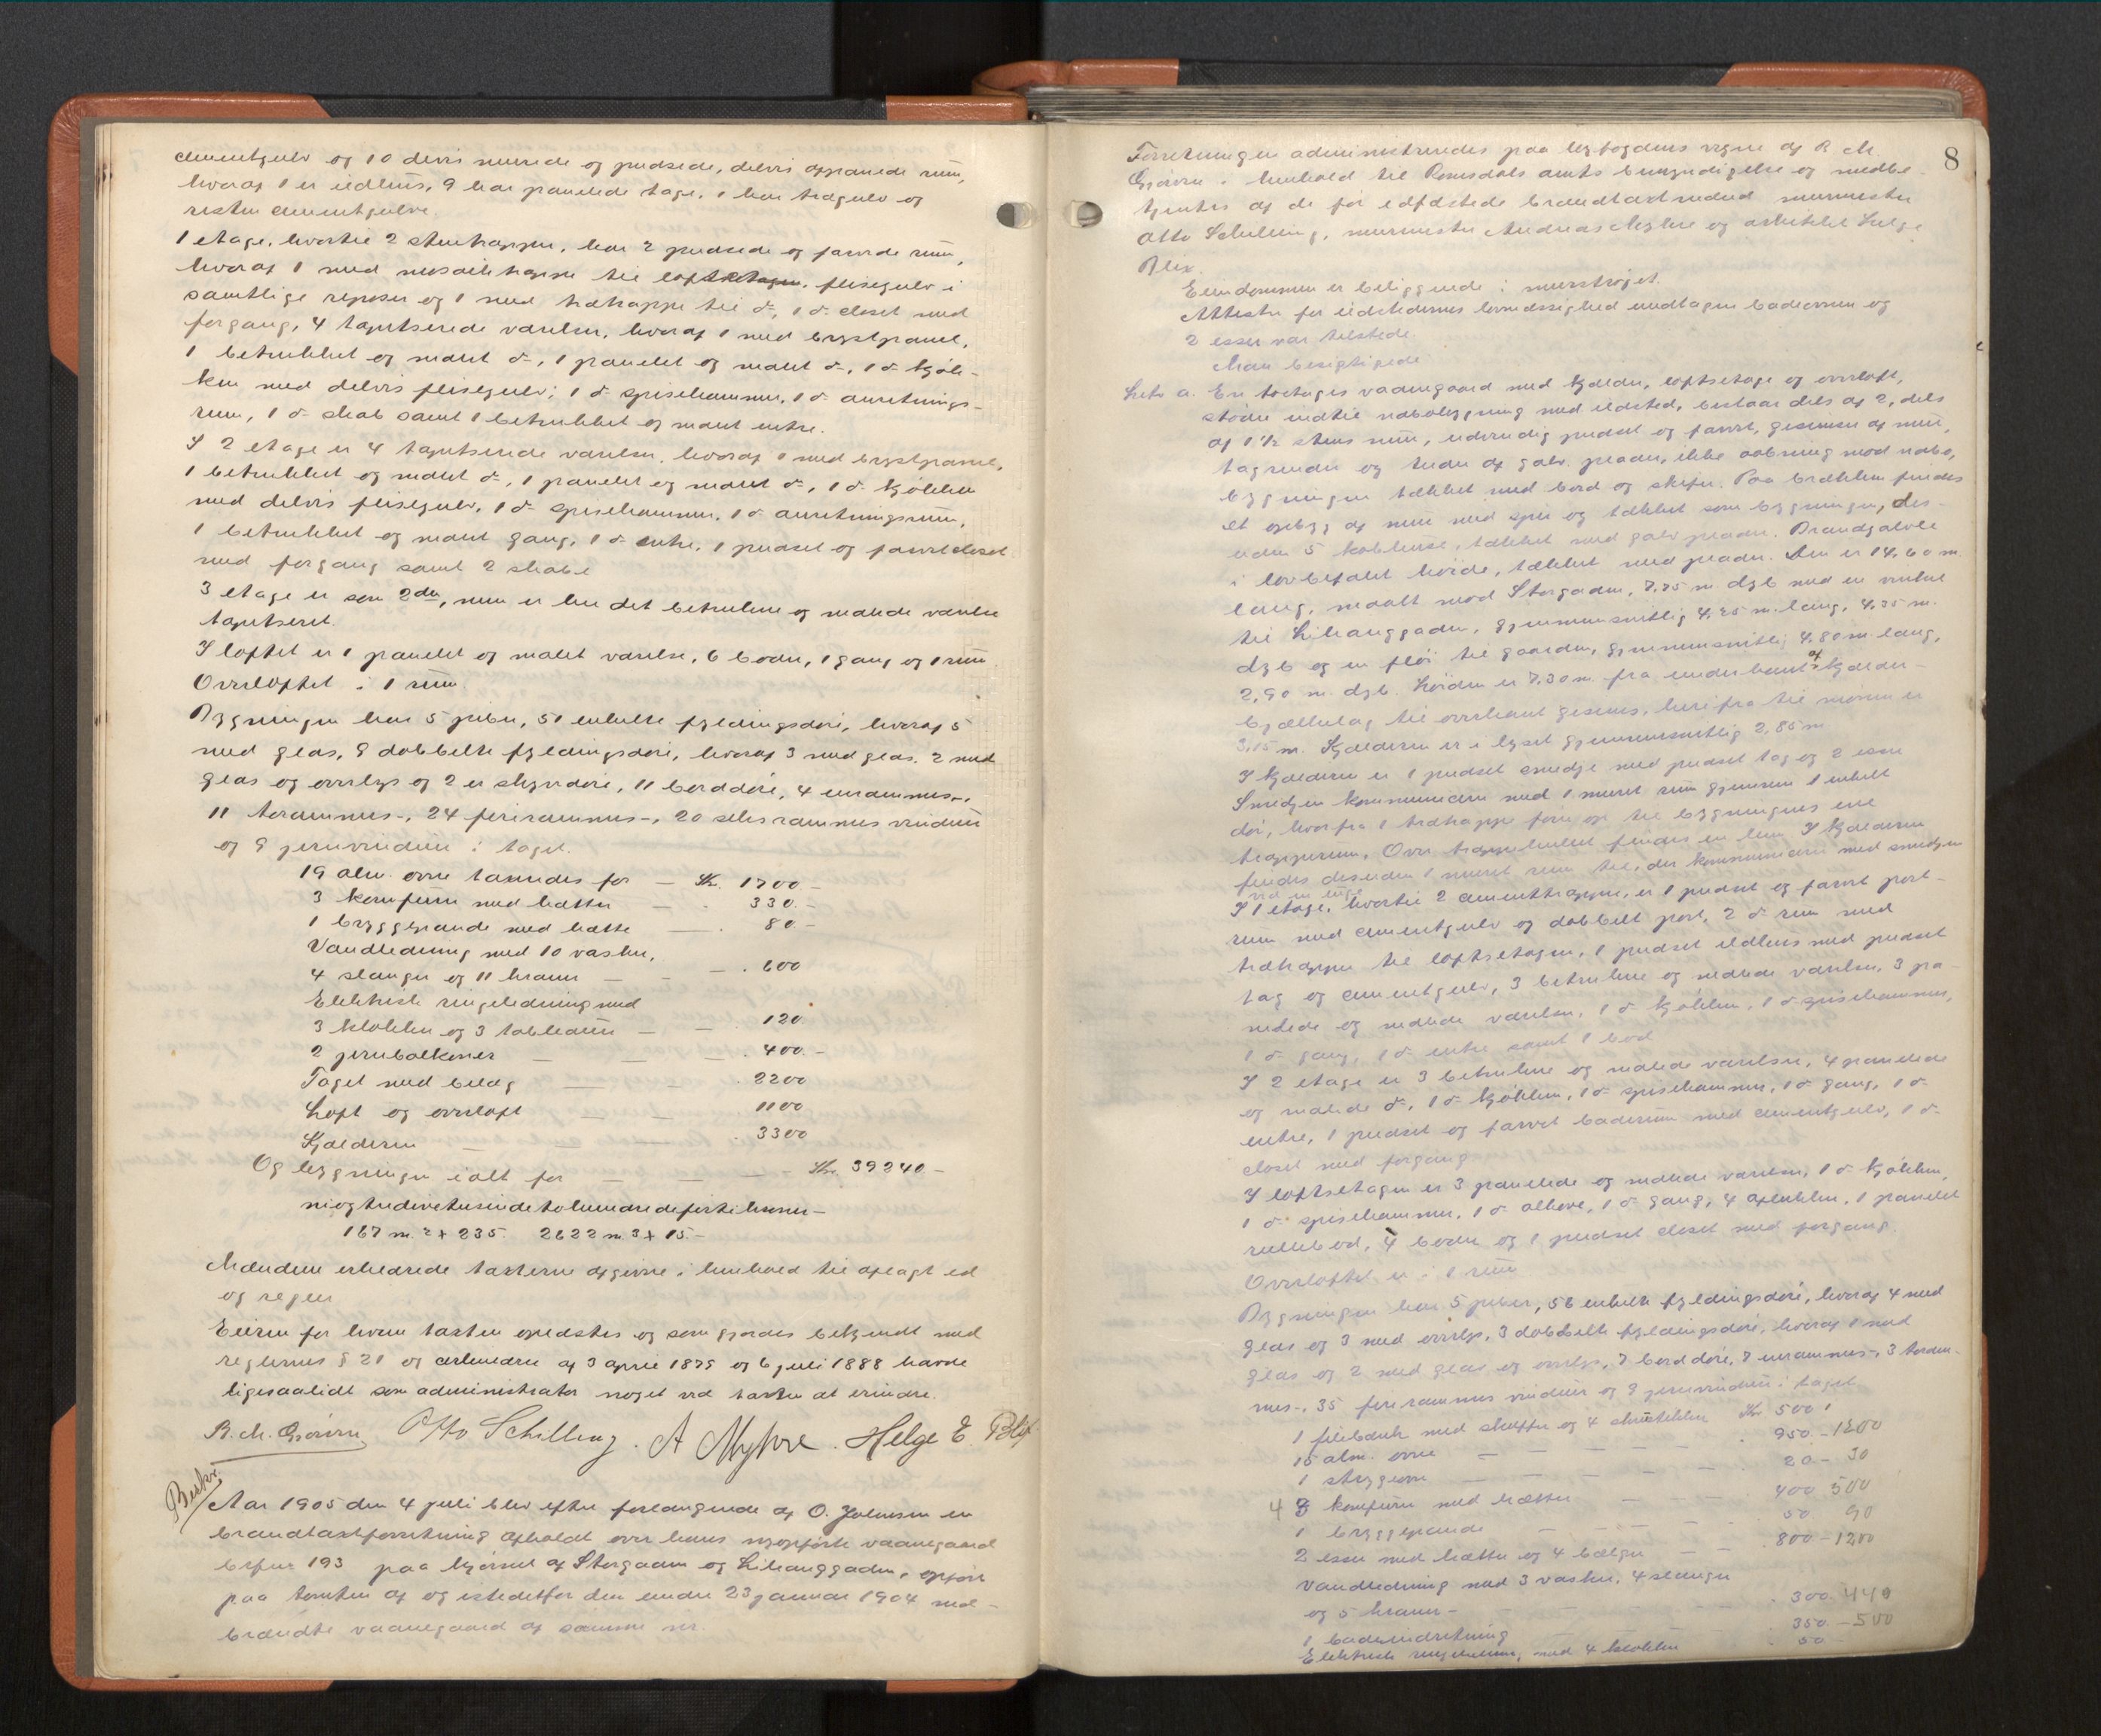 cementgulv og 10 delvis murede og pudsede, delvis oppanede rum,
hvoraf 1 er ildhus, 9 har panelede tage, 1 har trægulv og
resten cementgulve.
1 etage, hvortil 2 stentrapper, har 2 pudsede og farvede rum,
hvoraf 1 med mosaiktrappe til loftsetagen, flisegulv i
samtlige reposer og 1 med trætrappe til do, 1 do closet med
forgang, 4 tapetserede værelser, hvoraf 1 med brystpanel,
1 betrukket og malet do, 1 panelet og malet do, 1 do kjøk-
ken med delvis flisegulv, 1 do spisekammer, 1 do anretnings-
rum, 1 do skab samt 1 betrukket og malet entre.
I 2 etage er 4 tapetserede værelser, hvoraf 1 med brystpanel,
1 betrukket og malet do, 1 panelet og malet do, 1 do kjøkken
med delvis flisegulv, 1 do spisekammer, 1 do anretningsrum,
1 betrukket og malet gang, 1 do entre, 1 pudset og farvet closet
med forgang samt 2 skabe
3 etage er som 2den, men er her det betrukne og malede værelse
tapetseret.
I loftet er 1 panelet og malet værelse, 6 boder, 1 gang og 1 rum
Overloftet i 1 rum.
Bygningen har 5 piber, 51 enkelte fyldingsdøre, hvoraf 5
med glas, 9 dobbelte fyldingsdøre, hvoraf 3 med glas, 2 med
glas og overlys og 2 er skyvedøre, 11 borddøre, 4 enrammes-,
11 torammes-, 24 firerammes-, 20 seksrammes vinduer
og 9 jernvinduer i taget.
19 alm. ovne taxeredes for — Kr. 1700 -
3 komfurer med hætter — 330.-
1 bryggepande med hætte — 80.-
Vandledning med 10 vasker,
4 slanger og 11 kraner — 600
Elektrisk ringeledning med
3 klokker og 3 tableauer — 120.
2 jernbalkoner — 400.-
Taget med belæg — 2200
Loft og overloft — 1100
Kjælderen — 3300
Og bygningen ialt for — Kr. 39240 -
niogtredivetusindetohundredeførti kroner —
167 m.² + 235. 2622 m.³ + 15.-
Mændene erklærede taxterne afgivne i henhold til aflagt ed
og regler
Eieren for hvem taxten oplæstes og som gjordes bekjendt med
reglernes § 21 og cirkulærer af 3 april 1875 og 6 juli 1888 havde
ligesaalidt som administrator noget ved taxten at erindre.
R. M. Gjørvn Otto Schilling. A Myhre. Helge E Blix
Beskr.
Aar 1905 den 4 juli blev efter forlangende af O. Johnsen en
brandtaxtforretning afholdt over hans nyopførte vaaningsgaard
brfnr 193 paa hjørnet af Storgaden og Lihauggaden, opført
paa tomten af og istedetfor den under 23 januar 1904 ned-
brændte vaaningsgaard af samme nr.
8
Forretningen administreredes paa lensfogdens vegne af R. M.
Gjørvn i henhold til Romsdals amts bemyndigelse og medbe-
tjentes af de før edfæstede brandtaxtmænd murmester
Otto Schilling, murmester Andreas Myhre og arkitekt Helge
Blix.
Eiendommen er beliggende i murstrøget.
Attester for ildstedernes lovmæssighed undtagen badeovnen og
2 esser var tilstede.
Man besigtigede
Litr a. En toetages vaaningsgaard med kjælder, loftsetage og overloft,
støder indtil nabobygning med ildsted, bestaar dels af 2, dels
af 1½ stens mur, udvendig pudset og farvet, gesimser af mur,
tagrender og render af galv. plader, ikke aabning mod nabo,
bygningen tækket med bord og skifer. Paa brækken findes
et opbyg af mur med spir og tækket som bygningen, des-
uden 5 kobhuse, tækket med galv plader. Brandgavle
i lovbefalet høide, tækket med plader. Den er 14,60 m.
lang, maalt mod Storgaden, 7,75 m. dyb med en vinkel
til Lihauggaden, gjennemsnitlig 4,25 m. lang, 4,35 m.
dyb og en fløi til gaarden, gjennemsnitlig 4,80 m. lang,
2,90 m. dyb. Høiden er 7,30 m. fra underkant af kjælder-
bjælkelag til overkant gesims, herifra til mønen er
3,15 m. Kjælderen er i lyset gjennemsnitlig 2,85 m.
I kjælderen er 1 pudset smedje med pudset tag og 2 esser
Smedjen kommunicerer med 1 muret rum gjennem 1 enkelt
dør, hvorfra 1 trætrappe fører op til bygningens ene
trapperum. Over trappehullet findes en lem. I kjælderen
findes desuden 1 muret rum til, der kommunicerer med smedjen
I 1 etage, hvortil 2 cementtrapper, er 1 pudset og farvet port-
rum med cementgulv og dobbelt port, 2 do rum med
trætrapper til loftsetagen, 1 pudset ildhus med pudset
tag og cementgulv, 3 betrukne og malede værelser, 3 pa-
nelede og malede værelser, 1 do kjøkken, 1 do spisekammer,
1 do gang, 1 do entre samt 1 bod
I 2 etage er 3 betrukne og malede værelser, 4 panelede
og malede do, 1 do kjøkken, 1 do spisekammer, 1 do gang, 1 do
entre, 1 pudset og farvet baderum med cementgulv, 1 do
closet med forgang
I loftsetagen er 3 panelede og malede værelser, 1 do kjøkken,
1 do spisekammer, 1 do alkove, 1 do gang, 4 aflukker, 1 panelet
rullebod, 4 boder og 1 pudset closet med forgang.
Overloftet er i 1 rum
Bygningen har 5 piber, 56 enkelte fyldingsdøre, hvoraf 4 med
glas og 3 med overlys, 3 dobbelte fyldingsdøre, hvoraf 1 med
glas og 2 med glas og overlys, 7 borddøre, 7 enrammes-, 3 toram-
mes-, 35 firerammes vinduer og 9 jernvinduer i taget
1 filebænk med skuffer og 4 skruestikker Kr 500
15 alm. ovne — 950 - 1200
1 strygeovn — 20 - 30
4 3 komfurer med hætter — 400 500
1 bryggepande — 50 90
2 esser med hætter og 4 bælger — 800 - 1200
Vandledning med 3 vasker, 4 slanger
og 5 kraner — 300. 440
1 badeindretning — 350. - 500
Elektrisk ringeledning med 4 klokker 50